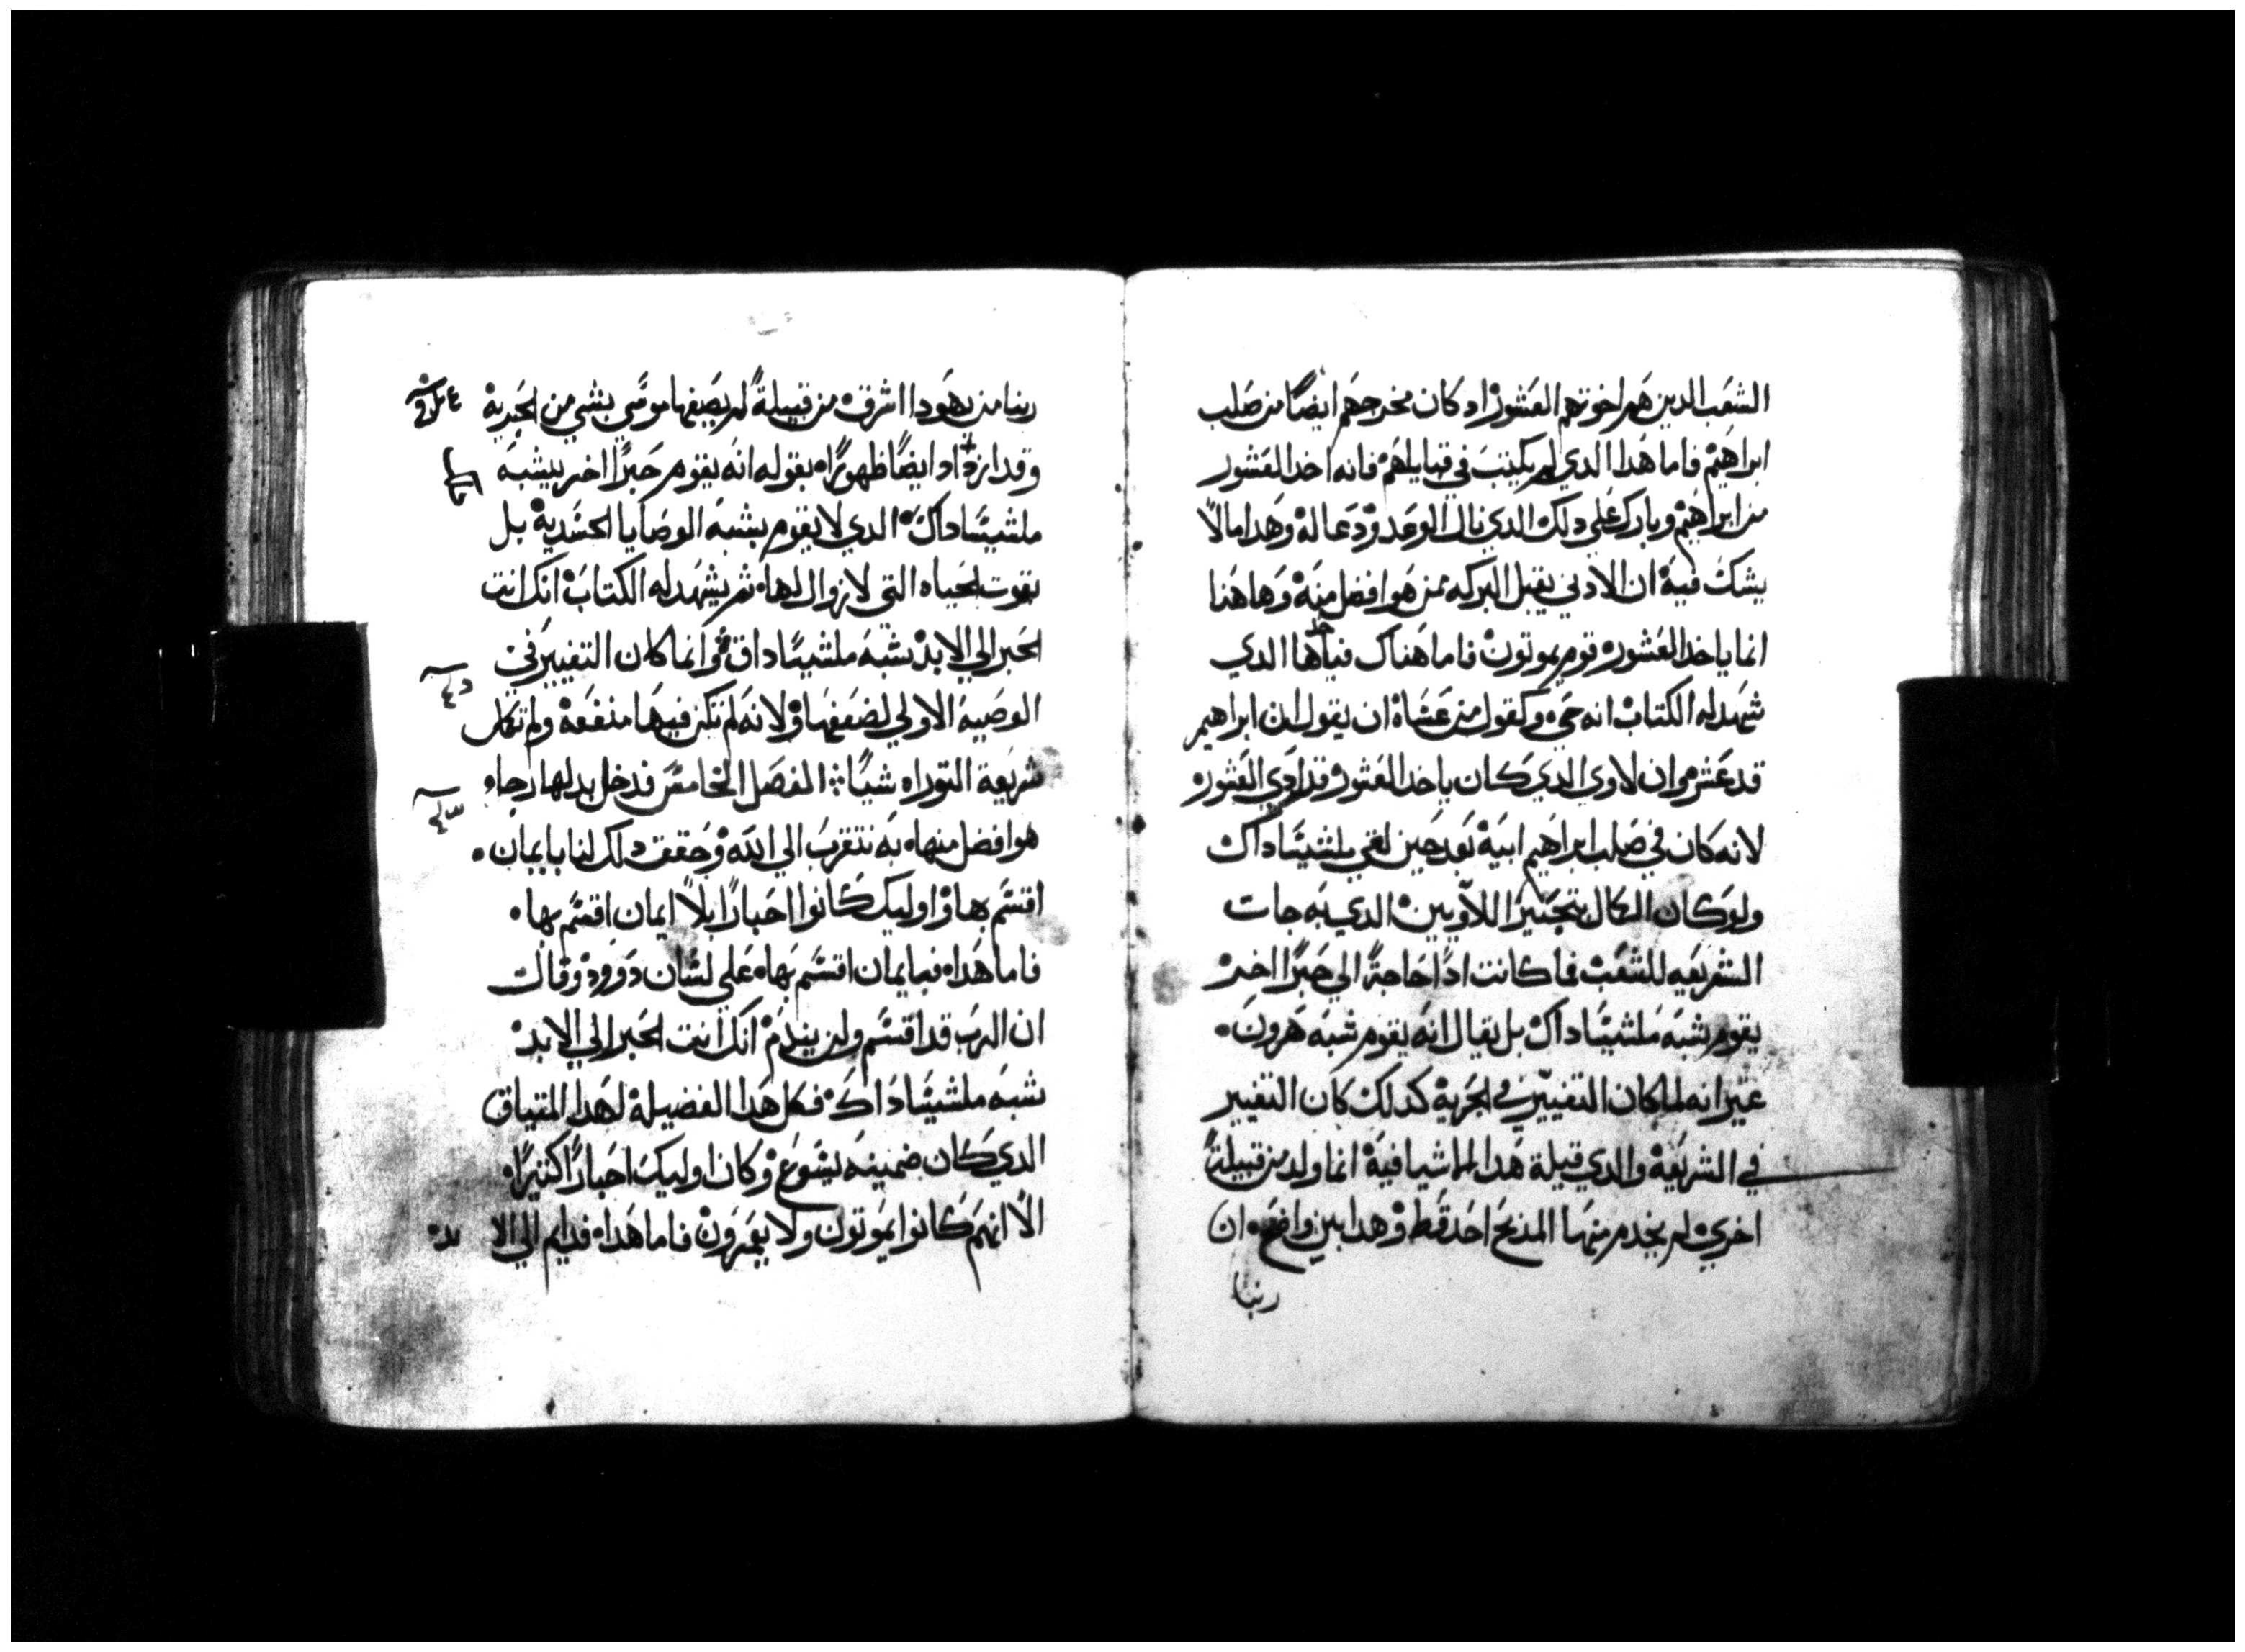 الشعب الدين هم اخوتهم العشور اد كان مخرجهم ايضًا من صلب
ابراهيم فاما هدا الدي لم يكتب في قبايلهم فانه اخد العشور
من ابراهيم وبارك على دلك الدي نال الوعد ودعا له وهدا مالا
يشك فيه ان الادني يقبل البركه ممن هو افضل منه وهاهنا
انما ياخد العشور قوم يموتون فاما هناك فياخدها الدي
شهد له الكتاب انه حي وكقول من عساه ان يقول ان ابراهيم
قد عشر وان لاوي الدي كان ياخد العشور قد ادي العشور
لانه كان في صلب ابراهيم ابيه بعد حين لقي ملشيساداك
ولو كان الكمال بتحبير اللاويين الدي به جات
الشريعه للشعب فما كانت ادًا حاجةً الي حبرًا اخر
يقوم بشبه ملشيساداك بل يقال انه يقوم شبه هرون
غير انه لما كان التغيير في الحبرية كدلك كان التغيير
في الشريعة والدي قيلة هدا الماشيا فية انما ولد من قبيلةً
اخري لم يخدم منها المدبح احد قط وهدا بين واضح ان
ربنا
ربنا من يهودا اشرق من قبيلةً لم يصفها موسي بشي من الحبرية
وقد ازداد ايضًا ظهورًا بقوله انه يقوم حبرًا اخر يشبه
ملشيساداك الدي لا يقوم بشبه الوصايا الجسدية بل
بقوت الحياه التي لا زوال لها ثم يشهد له الكتاب انك انت
الحبر الي الابد بشبه ملشيساداق وانما كان التغيير في
الوصية الاولي لضعفها ولانه لم تكن فيها منفعة ولم تكمل
شريعة التوراه شيًا الفصل الخامس فدخل بدلها رجا
هو افضل منها به نتقرب الي الله وحقق دلك لنا بايمان
اقسم بها واوليك كانوا احبارًا بلا ايمان اقسم بها
فاما هدا فبايمان اقسم بها علي لسان دوود وقال
ان الرب قد اقسم ولن يندم انك انت الحبر الي الابد
شبه ملشيساداك فكل هدا الفضيلة لهدا الميثاق
الدي كان ضمينه يسوع وكان اوليك احبارًا كثيرًا
الا انهم كانوا يموتون ولا يعمرون فاما هدا فدايم الي الابد